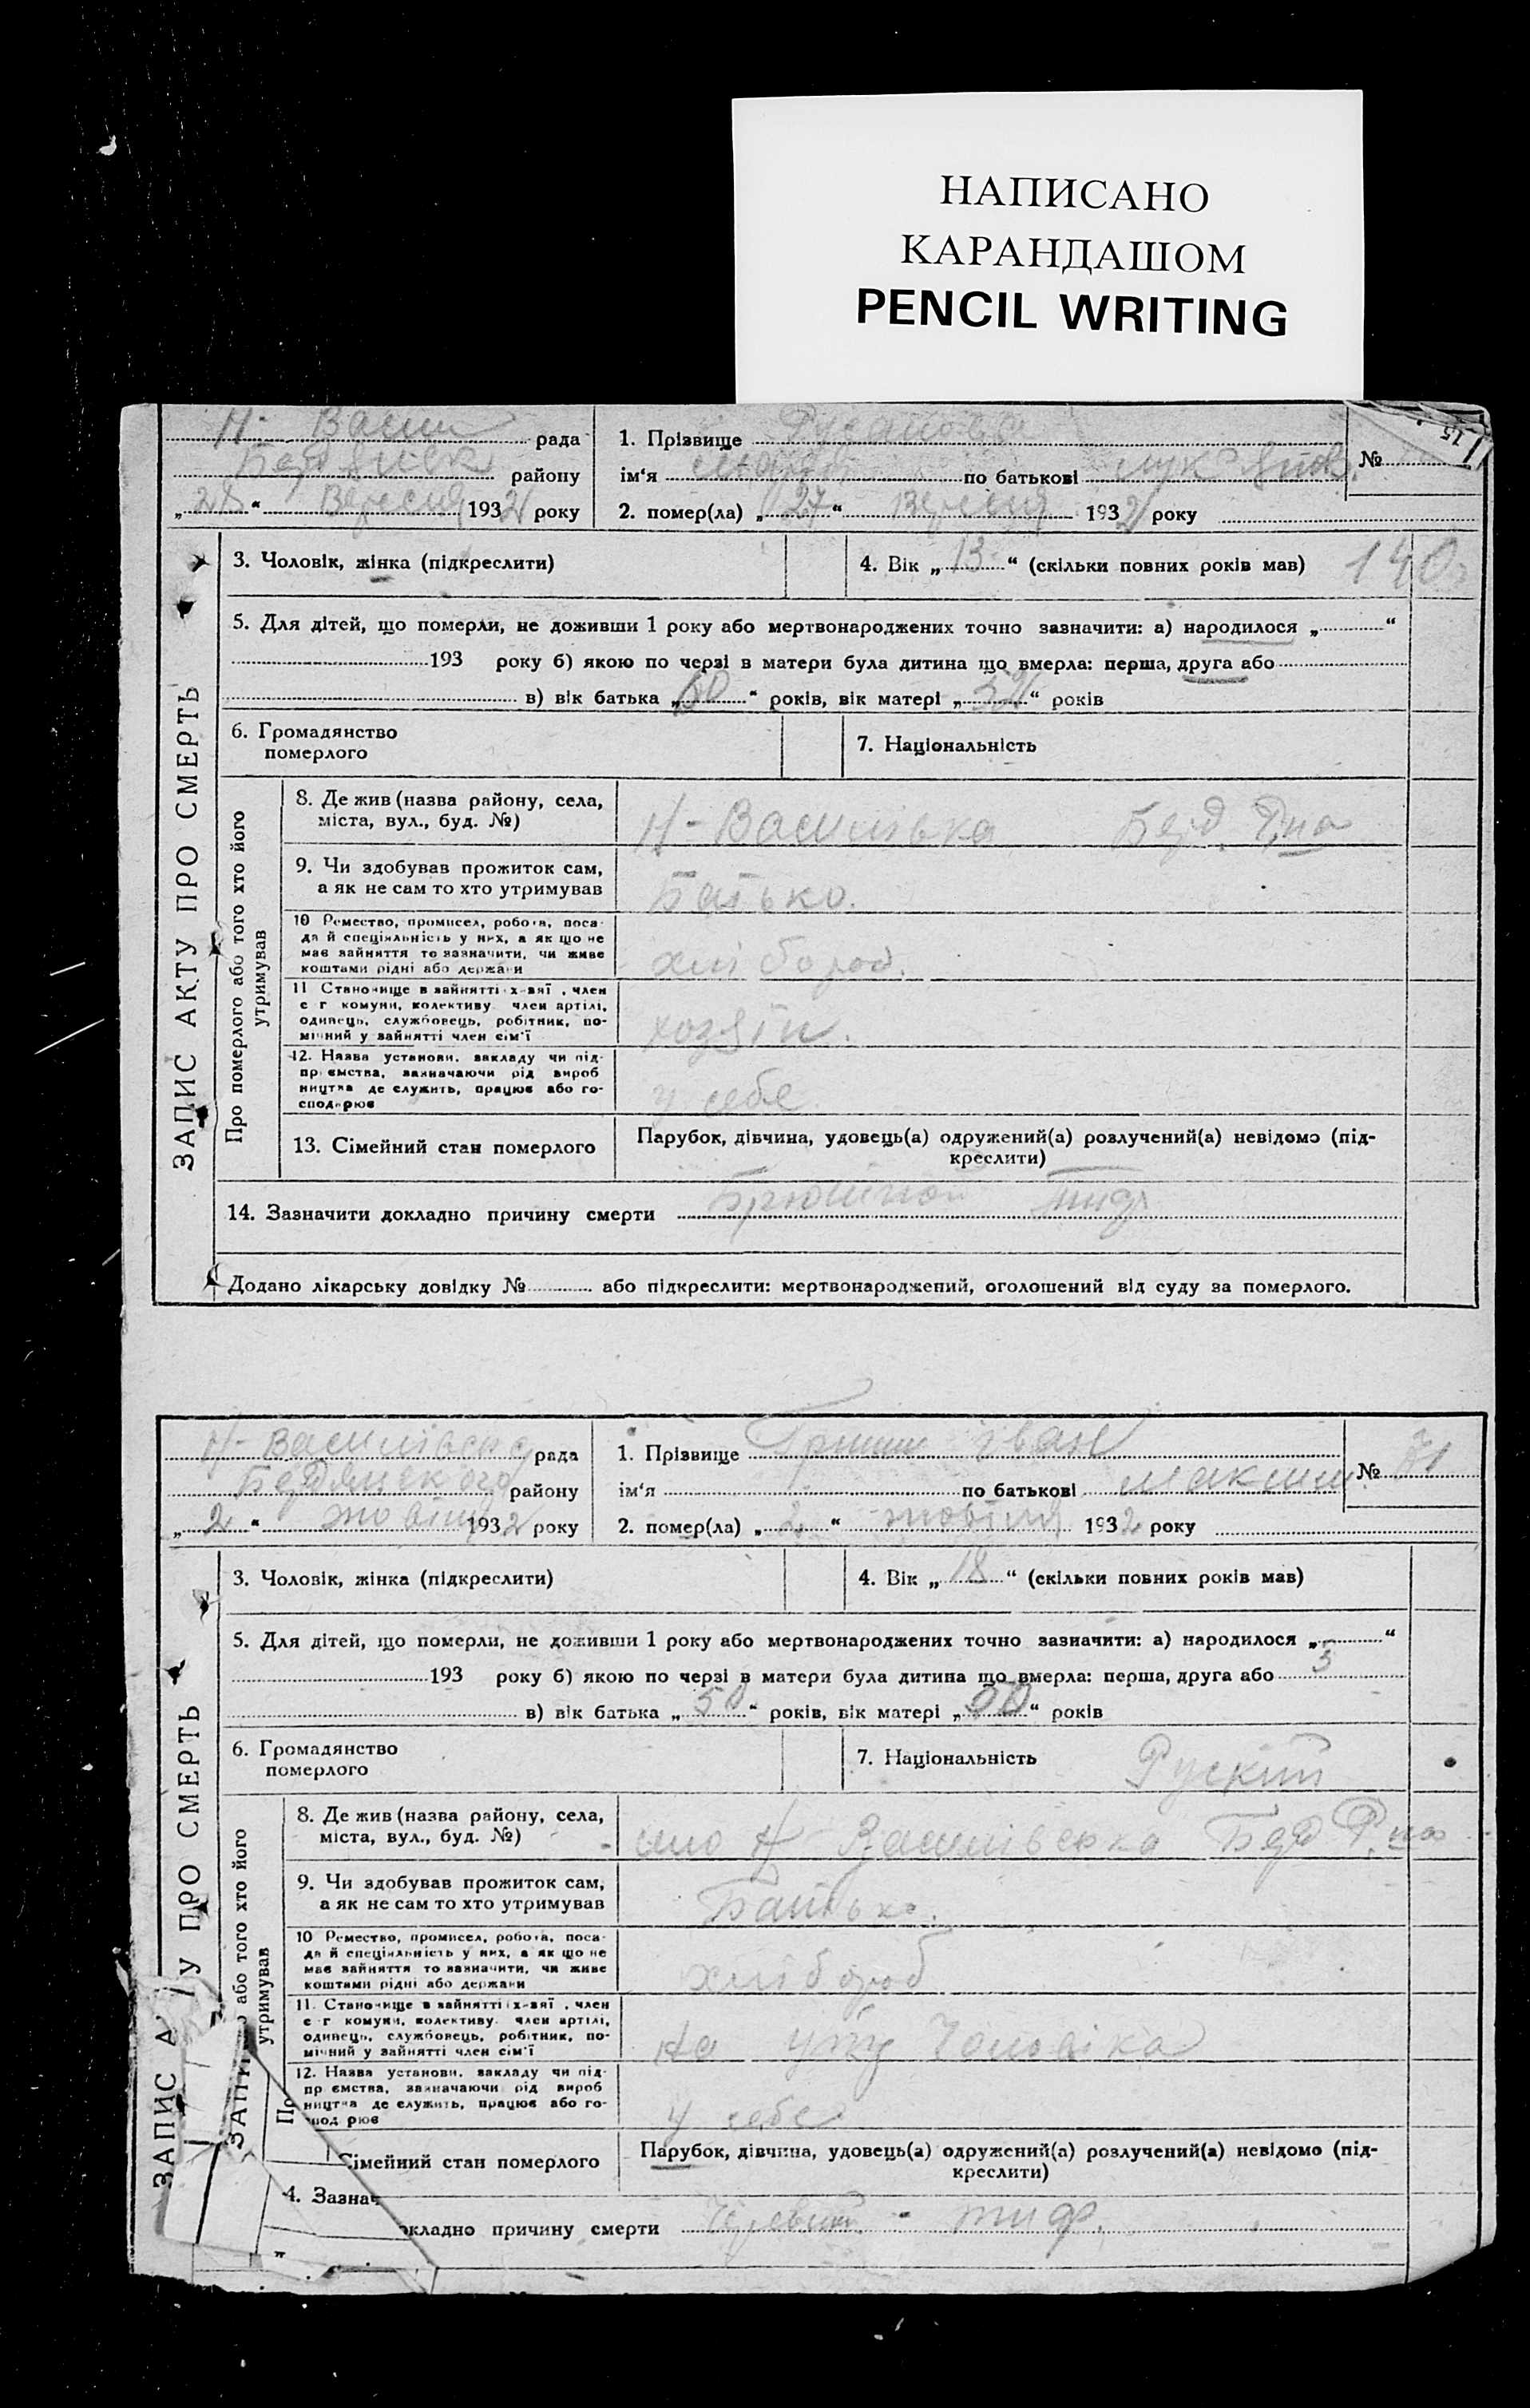 НАПИСАНО
КАРАНДАШОМ
PENCIL WRITING
Н- Васил рада
району
„28“ Вересня 1932 року
1. Прізвище Русанова
ім‘я по батькові
№
2. помер(ла) „27“ Вересня 1932 року
ЗАПИС АКТУ ПРО СМЕРТЬ
3. Чоловік, жінка (підкреслити)
4. Вік „13“ (скільки повних років мав)
140
5. Для дітей, що померли, не доживши 1 року або мертвонароджених точно зазначити: а) народилося „ “
193 року б) якою по черзі в матери була дитина що вмерла: перша, друга або
в) вік батька „60“ років, вік матері „ “ років
6. Громадянство
померлого
7. Національність
Про померлого або того хто його
утримував
8. Де жив (назва району, села,
міста, вул., буд. №)
Н-Василівка Берд. Р-на
9. Чи здобував прожиток сам,
а як не сам то хто утримував
Батько.
10 Ремество, промисел, робота, поса-
да й спеціяльність у них, а як що не
має зайняття то зазначити, чи живе
коштами рідні або держави
хлібороб.
11 Становище в зайнятті х-зяї , член
с г комуни, колективу член артілі,
одинець, службовець, робітник, по-
мічний у зайнятті член сім‘ї
хозяін.
12. Назва установи, закладу чи під-
приємства, зазначаючи рід вироб
ництва де служить, працює або го-
сподарює
у себе
13. Сімейний стан померлого
Парубок, дівчина, удовець(а) одружений(а) розлучений(а) невідомо (під-
креслити)
14. Зазначити докладно причину смерти Брюшной тиф
Додано лікарську довідку № або підкреслити: мертвонароджений, оголошений від суду за померлого.
Н- Василівська рада
Бердянського району
„2“ жовтня 1932 року
1. Прізвище Іван
ім‘я по батькові Максим
№ 71
2. помер(ла) „2“ жовтня 1932 року
У ПРО СМЕРТЬ
ЗАПИС А
3. Чоловік, жінка (підкреслити)
4. Вік „18“ (скільки повних років мав)
5. Для дітей, що померли, не доживши 1 року або мертвонароджених точно зазначити: а) народилося „ “
193 року б) якою по черзі в матери була дитина що вмерла: перша, друга або 5
в) вік батька „50“ років, вік матері „50“ років
6. Громадянство
померлого
7. Національність Рускій
або того хто його
утримував
8. Де жив (назва району, села,
міста, вул., буд. №)
Н Василівська Берд Р-на
9. Чи здобував прожиток сам,
а як не сам то хто утримував
Батько.
10 Ремество, промисел, робота, поса-
да й спеціяльність у них, а як що не
має зайняття то зазначити, чи живе
коштами рідні або держави
хлібороб
11. Становище в зайнятті х-зяї , член
с г комуни, колективу член артілі,
одинець, службовець, робітник, по-
мічний у зайнятті член сім‘ї
На Чоловіка
12. Назва установи, закладу чи під-
пр ємства, зазначаючи рід вироб
ництва де служить, працює або го-
под рює
у себе
Сімейний стан померлого
Парубок, дівчина, удовець(а) одружений(а) розлучений(а) невідомо (під-
креслити)
4. Зазнач
окладно причину смерти - тиф.